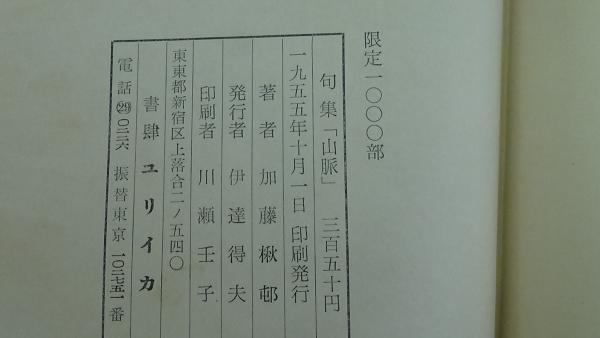 限定一〇〇〇部
句集「山脈」 三百五十円
一九五五年十月一日 印刷発行
著者 加藤楸邨
発行者 伊達得夫
印刷者 川瀬壬子
東東都新宿区上落合二ノ五四〇
書肆 ユリイカ
電話㉙〇二二六 振替東京 一〇二七五一番